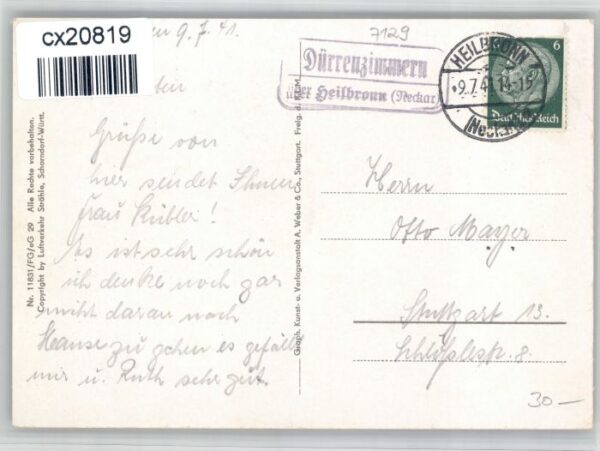 cx20819
7129
9.7.41.
Dürrenzimmern
über Heilbronn (Neckar)
HEILBRONN
9.7.4
(Neckar)
6
Deutsches Reich
Grüße von
hier sendet Ihnen
Frau Kübler!
Es ist sehr schön
ich denke noch gar
nicht daran nach
Hause zu gehen es gefällt
mir u. Ruth sehr gut.
Nr. 11831/FG/eG 29 Alle Rechte vorbehalten.
Copyright by Luftverkehr Strähle, Schorndorf-Württ.
Graph. Kunst- u. Verlagsanstalt A. Weber & Co., Stuttgart. Freig. d. RLM.
Herrn
Otto Mayer
Stuttgart 13.
30-